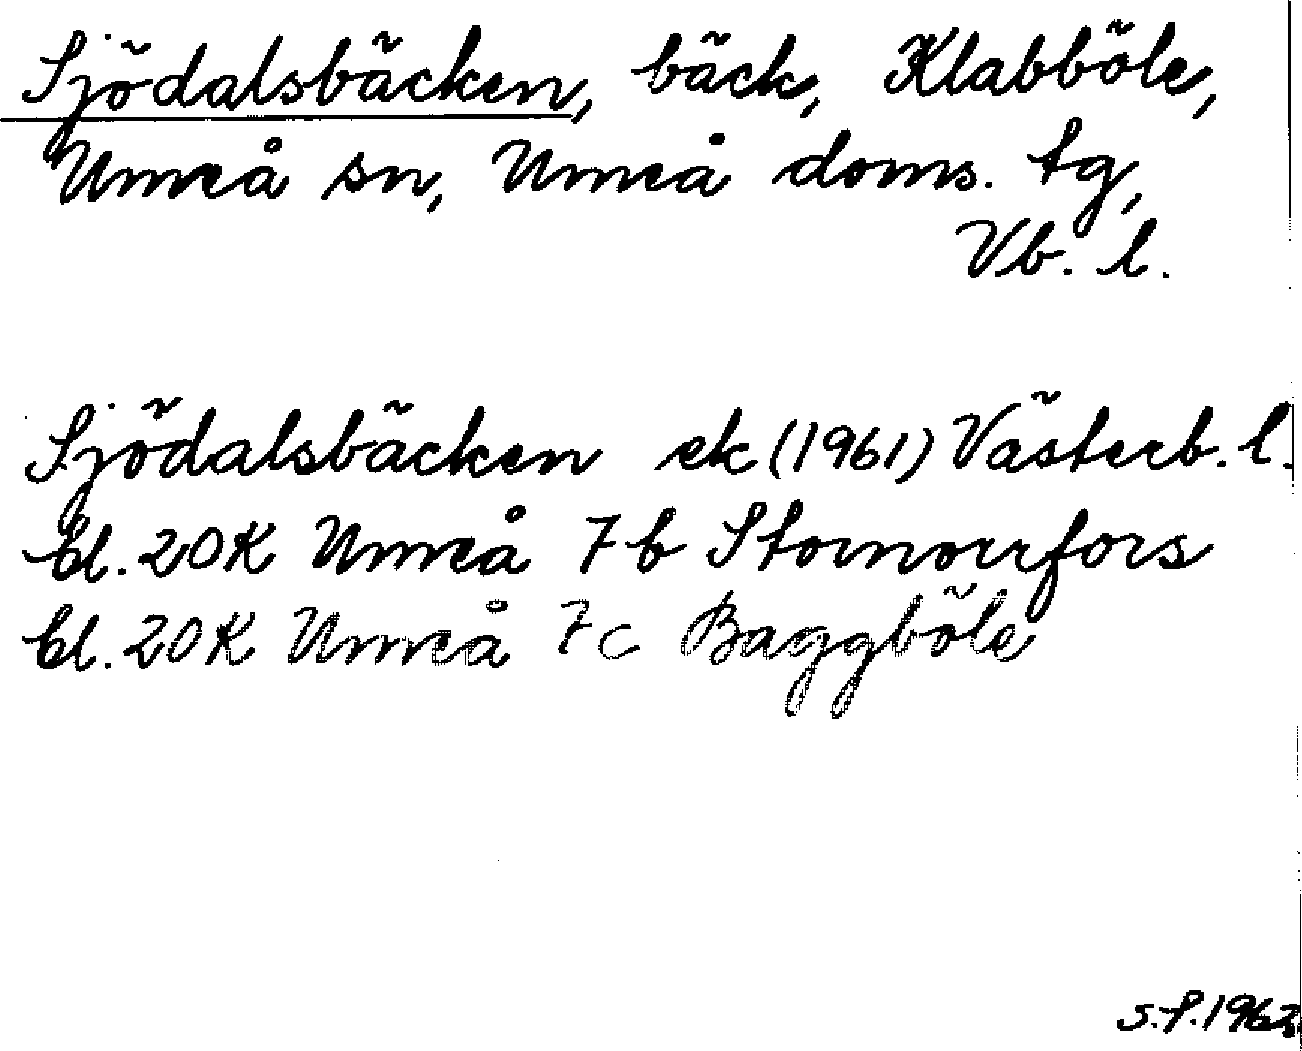 Sjödalsbäcken, bäck, Klabböle,
Umeå sn, Umeå doms. tg,
Vb. l.
Sjödalsbäcken ek (1961) Västerb. l.
bl. 20K Umeå 7b Stornorrfors
bl. 20K Umeå 7c Baggböle
S.P. 1962